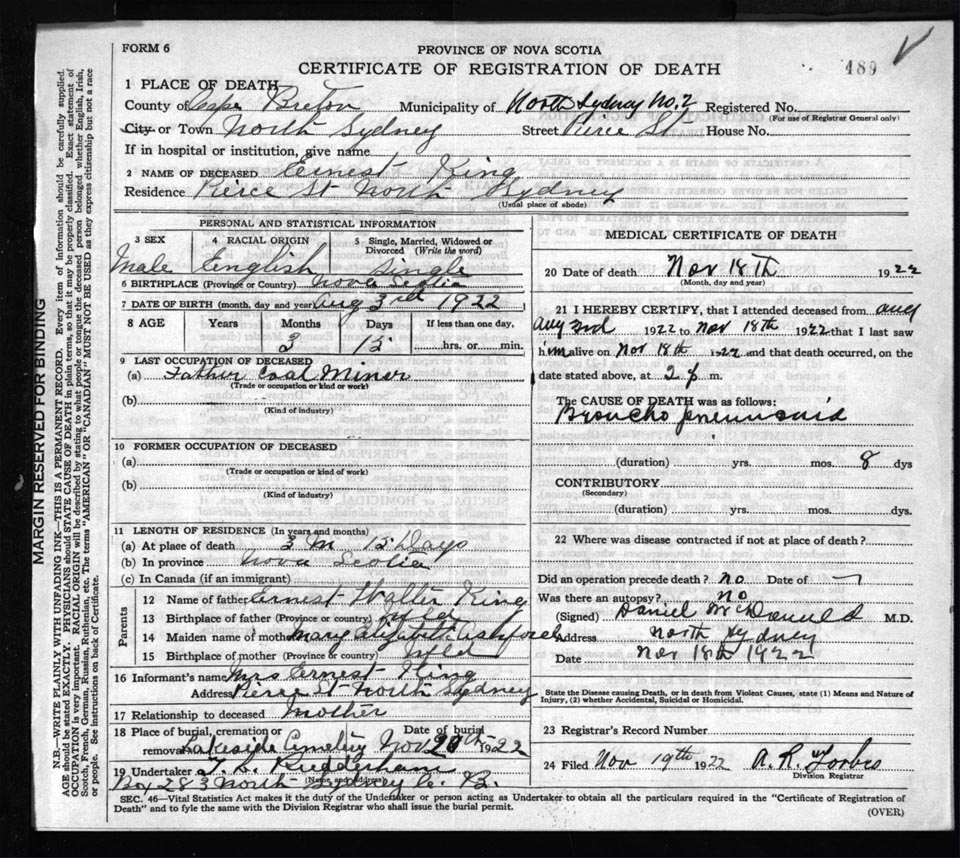 FORM 6
PROVINCE OF NOVA SCOTIA
CERTIFICATE OF REGISTRATION OF DEATH
489
1 PLACE OF DEATH
County of Cape Breton Municipality of North Sydney No. 2 Registered No.
(For use of Registrar General only)
City or Town North Sydney Street Pierce St House No.
If in hospital or institution, give name
2 NAME OF DECEASED Ernest King
Residence Pierce St North Sydney
(Usual place of abode)
PERSONAL AND STATISTICAL INFORMATION
3 SEX 4 RACIAL ORIGIN 5 Single, Married, Widowed or Divorced (Write the word)
Male English Single
6 BIRTHPLACE (Province or Country) Nova Scotia
7 DATE OF BIRTH (month, day and year) Aug 3rd 1922
8 AGE Years Months Days If less than one day,
3 15 hrs. or min.
9 LAST OCCUPATION OF DECEASED
(a) Father Coal Miner
(Trade or occupation or kind of work)
(b)
(Kind of industry)
10 FORMER OCCUPATION OF DECEASED
(a)
(Trade or occupation or kind of work)
(b)
(Kind of industry)
11 LENGTH OF RESIDENCE (In years and months)
(a) At place of death 3 M 15 Days
(b) In province Nova Scotia
(c) In Canada (if an immigrant)
Parents
12 Name of father Ernest Walter King
13 Birthplace of father (Province or country)
14 Maiden name of mother Mary Elizabeth
15 Birthplace of mother (Province or country) Nfld
16 Informant's name Mrs Ernest King
Address Pierce St North Sydney
17 Relationship to deceased Mother
18 Place of burial, cremation or removal Date of burial
Lakeside Cemetery Nov 20th 1922
19 Undertaker
(Name and address)
Box 283 North Sydney C. B.
MEDICAL CERTIFICATE OF DEATH
20 Date of death Nov 18th 1922
(Month, day and year)
21 I HEREBY CERTIFY, that I attended deceased from Aug
Aug 3rd 1922 to Nov 18th 1922 that I last saw
him alive on Nov 18th 1922 and that death occurred, on the
date stated above, at 2 p m.
The CAUSE OF DEATH was as follows:
Broncho pneumonia
(duration) yrs. mos. 8 dys
CONTRIBUTORY
(Secondary)
(duration) yrs. mos. dys.
22 Where was disease contracted if not at place of death?
Did an operation precede death? no Date of
Was there an autopsy? no
(Signed) Daniel McDonald M.D.
Address North Sydney
Date Nov 18th 1922
State the Disease causing Death, or in death from Violent Causes, state (1) Means and Nature of
Injury, (2) whether Accidental, Suicidal or Homicidal.
23 Registrar's Record Number
24 Filed Nov 19th 1922 A. R. Forbes
Division Registrar
SEC. 46—Vital Statistics Act makes it the duty of the Undertaker or person acting as Undertaker to obtain all the particulars required in the "Certificate of Registration of
Death" and to fyle the same with the Division Registrar who shall issue the burial permit.
(OVER)
MARGIN RESERVED FOR BINDING
N.B.—WRITE PLAINLY WITH UNFADING INK—THIS IS A PERMANENT RECORD. Every item of information should be carefully supplied.
AGE should be stated EXACTLY. PHYSICIANS should STATE CAUSE OF DEATH in plain terms, so that it may be properly classified. Exact statement of
OCCUPATION is very important. RACIAL ORIGIN will be described by stating to what people or tongue the deceased person belonged whether English, Irish,
Scotch, French, German, Russian, Ruthenian, etc. The terms "AMERICAN" OR "CANADIAN" MUST NOT BE USED as they express citizenship but not a race
or people. See instructions on back of Certificate.